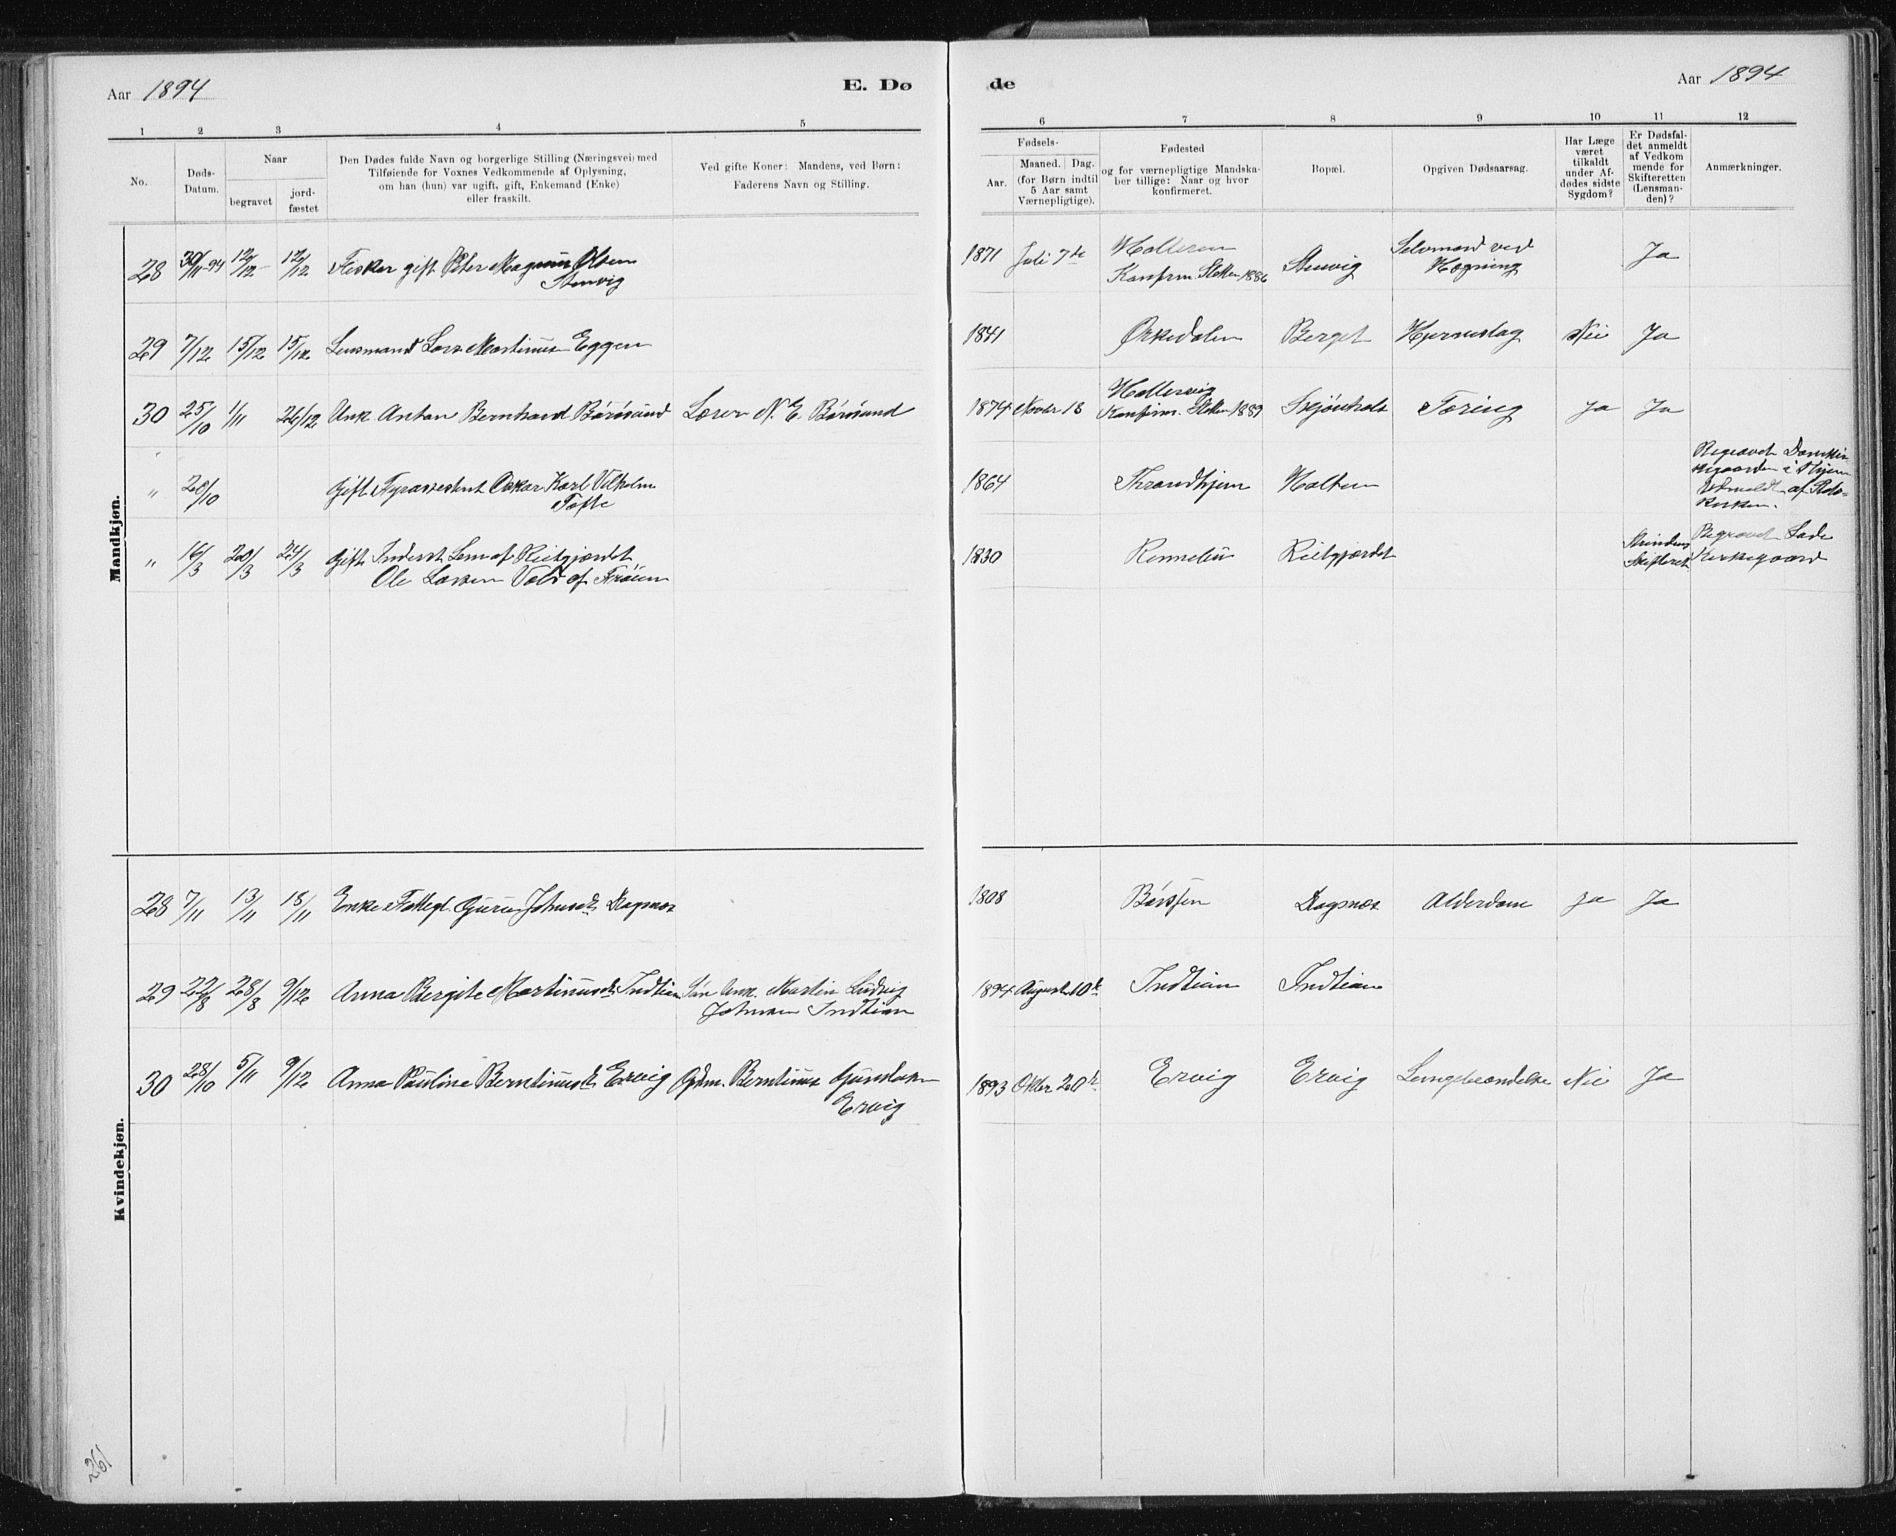 Aar 1894
E. Dø
de
Aar 1894
1 2 3 4 5
6 7 8 9 10 11 12
No.
Døds-
Datum.
Naar
begravet
jord-
fæstet
Den Dødes fulde Navn og borgerlige Stilling (Næringsvei) med
Tilføiende for Voxnes Vedkommende af Oplysning,
om han (hun) var ugift, gift, Enkemand (Enke)
eller fraskilt.
Ved gifte Koner: Mandens, ved Børn:
Faderens Navn og Stilling.
Fødsels-
Aar.
Maaned. Dag.
(for Børn indtil
5 Aar samt
Værnepligtige).
Fødested
og for værnepligtige Mandska-
ber tillige: Naar og hvor
konfirmeret.
Bopæl.
Opgiven Dødsaarsag.
Har Læge
været
tilkaldt
under Af-
dødes sidste
Sygdom?
Er Dødsfal-
det anmeldt
af Vedkom
mende for
Skifteretten
(Lensman-
den)?
Anmærkninger.
Mandkjøn.
28 30/11-94 12/12 12/12 Fisker gift Peter Magnus Olsen
Stenvig
1871 Juli 7de
Konfirm 1886 Stenvig Selvmord ved
Hægning Ja
29 7/12 15/12 15/12 Lensmand Lars Martinus Eggen
1841 Ørkedalen Berget Hjerneslag Nei Ja
30 25/10 1/11 26/12 Unk. Anton Bernhard Børøsund Lærer N. E. Børøsund
1874 Novbr 18 Hallesvig
Konfirm. 1889 Skjönhals Tæring Ja Ja
" 20/10 gift Fyrassistent Oskar Karl Vilhelm
Tofte
1864 Throndhjem Halten
Begravet
" 16/3 20/3 24/3 gift Inderst Lem af Reitgjærdet
Ole Larsen Vold af Frøien
1830 Rennebu Reitgjærdet Strindens
Skifteret Begravet Lade
Kirkegaard
Kvindekjøn.
28 7/11 13/11 18/11 Enke Fattigl. Guru Johnsd. Dagsnes
1808 Børsen Dagsnes Alderdom Ja Ja
29 22/8 28/8 9/12 Anna Bergite Martinusd. Indtian Unk. Martin Ludvig
Johnsen Indtian
1894 August 10de Indtian Indtian
30 28/10 5/11 9/12 Anna Pauline Berntinusd. Ervig Gdm. Berntinus
Ervig
1893 Oktbr 20de Ervig Ervig Lungebetændelse Nei Ja
261